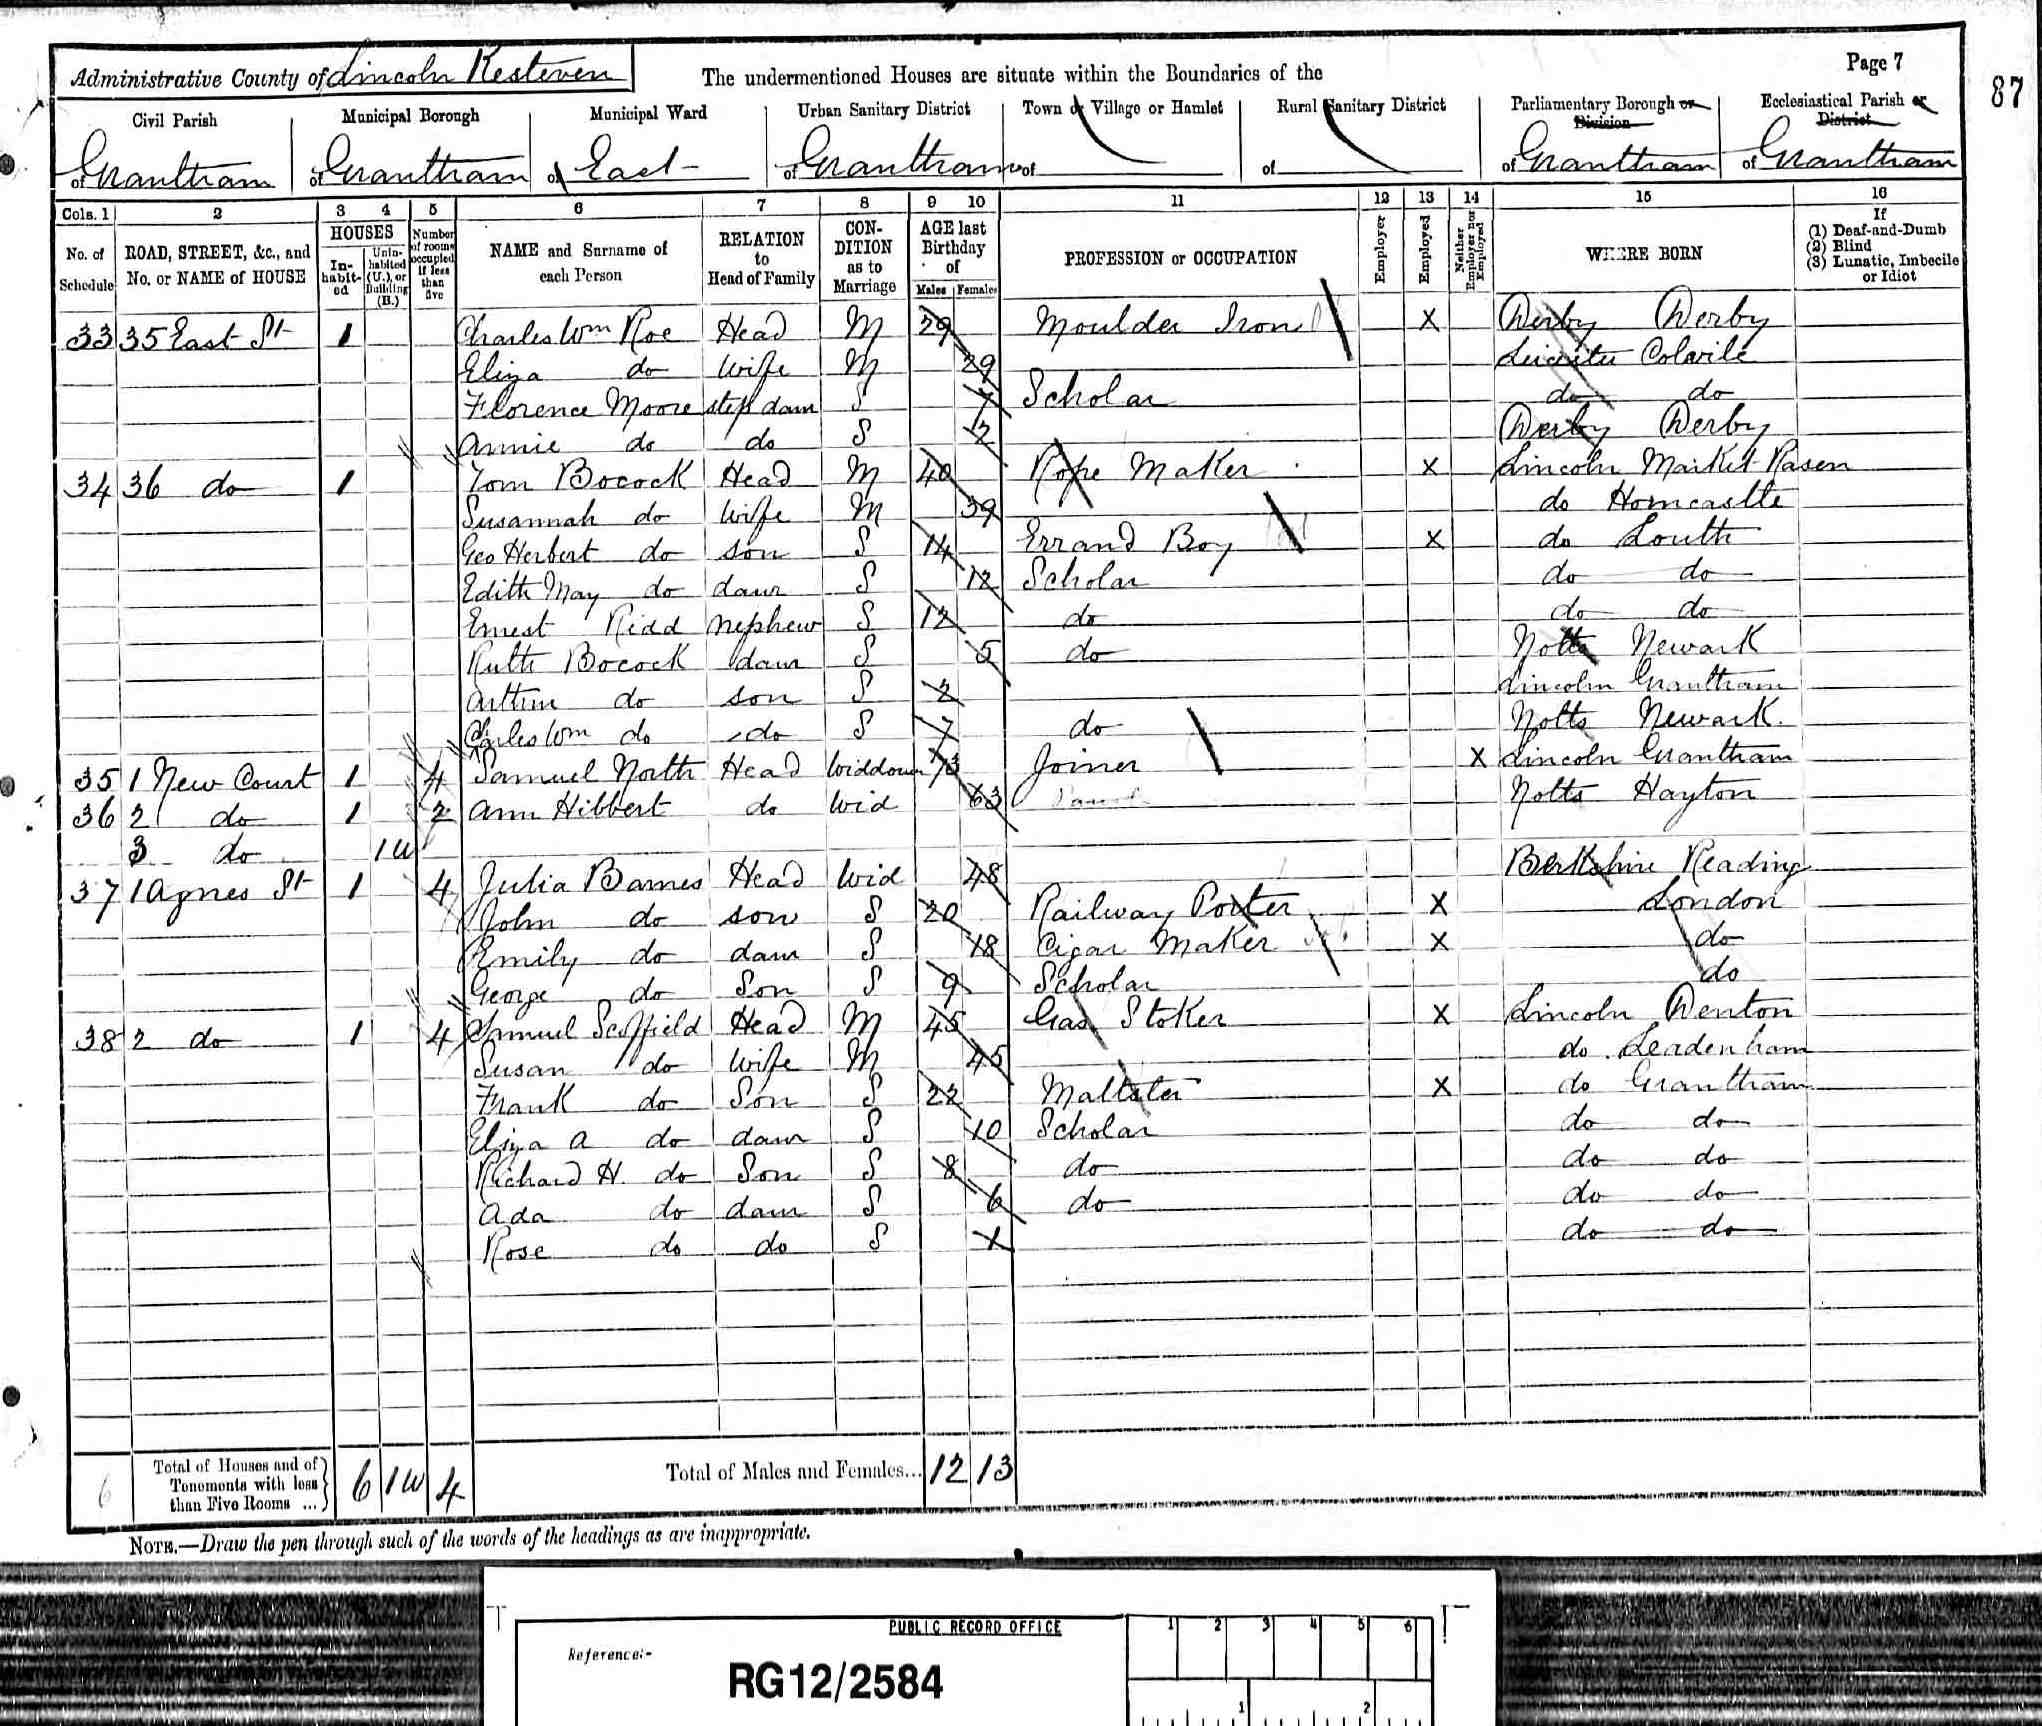 Administrative County of Lincoln Kesteven The undermentioned Houses are situate within the Boundaries of the Page 7
87
Civil Parish Municipal Borough Municipal Ward Urban Sanitary District Town or Village or Hamlet Rural Sanitary District Parliamentary Borough or Division Ecclesiastical Parish or District
of Grantham of Grantham of East of Grantham of of of Grantham of Grantham
Cols. 1 2 3 4 5 6 7 8 9 10 11 12 13 14 15 16
No. of Schedule ROAD, STREET, &c., and No. or NAME of HOUSE HOUSES Inhabited Uninhabited (U.), or Building (B.) Number of rooms occupied if less than five NAME and Surname of each Person RELATION to Head of Family CONDITION as to Marriage AGE last Birthday of Males Females PROFESSION or OCCUPATION Employer Employed Neither Employer nor Employed WHERE BORN If (1) Deaf-and-Dumb (2) Blind (3) Lunatic, Imbecile or Idiot
33 35 East St 1 Charles Wm Roe Head M 29 Moulder Iron X Derby Derby
Eliza do Wife M 29 Leicester Colavile
Florence Moore step daur S 7 Scholar do do
Annie do do S 12 Derby Derby
34 36 do 1 Tom Bocock Head M 40 Rope Maker X Lincoln Market Rasen
Susannah do Wife M 39 do Horncastle
Geo Herbert do son S 14 Errand Boy X do Louth
Edith May do daur S 12 Scholar do do
Ernest Kidd nephew S 12 do do do
Ruth Bocock daur S 5 do Notts Newark
Arthur do son S 2 Lincoln Grantham
Charles Wm do do S 7 do Notts Newark
35 1 New Court 1 4 Samuel North Head Widdower 73 Joiner X Lincoln Grantham
36 2 do 1 2 Ann Hibbert do Wid 63 Notts Hayton
3 do 1 U
37 1 Agnes St 1 4 Julia Barnes Head Wid 48 Berkshire Reading
John do son S 20 Railway Porter X London
Emily do daur S 18 Cigar Maker X do
George do Son S 9 Scholar do
38 2 do 1 4 Samuel Scoffield Head M 45 Gas Stoker X Lincoln Denton
Susan do Wife M 45 do Leadenham
Frank do Son S 22 Maltster X do Grantham
Eliza A do daur S 10 Scholar do do
Richard H. do Son S 8 do do do
Ada do daur S 6 do do do
Rose do do S 1 do do
6 Total of Houses and of Tenements with less than Five Rooms ... 6 1 U 4 Total of Males and Females... 12 13
NOTE.—Draw the pen through such of the words of the headings as are inappropriate.
PUBLIC RECORD OFFICE 1 2 3 4 5 6
Reference:-
RG12/2584
1 2